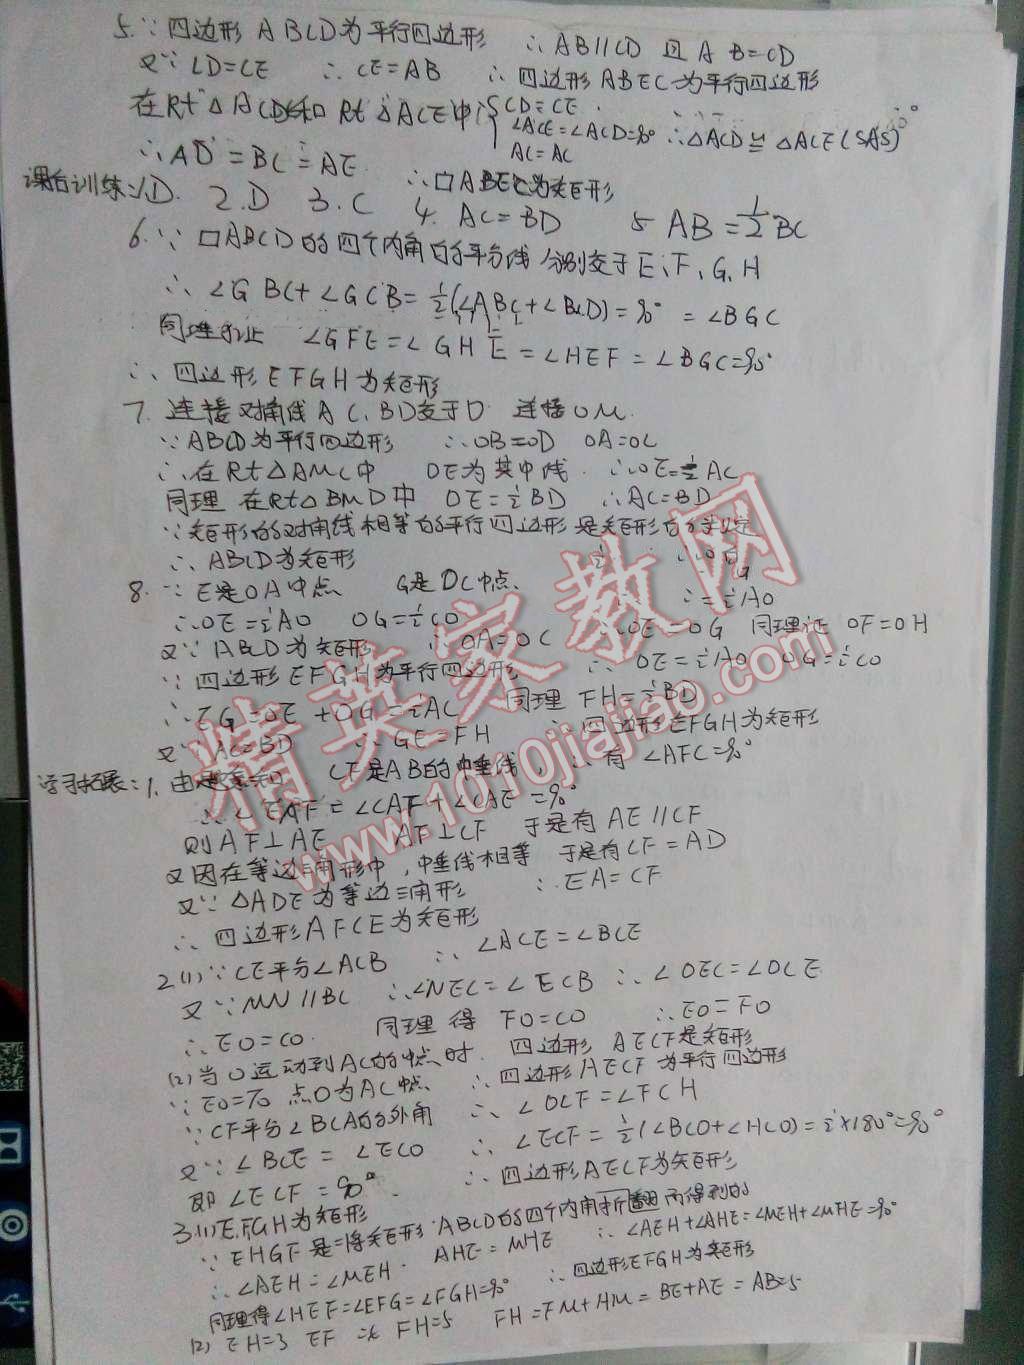 5. ∵ 四边形 ABCD为平行四边形 ∴ AB∥CD 且 AB=CD
又∵ CD=CE ∴ CE=AB ∴ 四边形 ABEC为平行四边形
在Rt△ACD和 Rt△ACE中 { CD=CE
∠ACE=∠ACD=90° ∴△ACD≌△ACE(SAS)
AC=AC
∴AD=BC=AE ∴□ABEC为矩形
课后训练:1.D. 2.D 3.C 4. AC=BD 5 AB=1/2BC
6. ∵ □ABCD的四个内角的平分线分别交于E、F、G、H
∴ ∠GBC+∠GCB=1/2(∠ABC+∠BCD)=90°=∠BGC
同理可证 ∠GFE=∠GHE=∠HEF=∠BGC=90°
∴ 四边形EFGH为矩形
7. 连接对角线AC、BD交于O 连接OM.
∵ABCD为平行四边形 ∴OB=OD OA=OC
∴在Rt△AMC中 OE为其中线 ∴OE=1/2AC
同理 在Rt△BMD中 OE=1/2BD ∴AC=BD
∵矩形的对角线相等的平行四边形是矩形的判定
∴ ABCD为矩形
8. ∵ E是OA中点 G是OC中点
∴OE=1/2AO OG=1/2CO ∴OE=OG 同理证 OF=OH
又∵ ABCD为矩形 ∴OA=OC ∴ OE=1/2AO OG=1/2CO
∵ 四边形EFGH为平行四边形
∴EG=OE+OG=1/2AC 同理 FH=1/2BD
又∵AC=BD ∴ GE=FH ∴四边形EFGH为矩形
学习拓展:1. 由题意知 CF是AB的中垂线, ∴有 ∠AFC=90°
∴∠EAF=∠CAF+∠CAE=90°
则AF⊥AE AF⊥CF 于是有 AE∥CF
又因在等边三角形中,中垂线相等 于是有CF=AD
又∵ △ADE为等边三角形 ∴EA=CF
∴ 四边形AFCE为矩形
2(1)∵CE平分∠ACB ∴ ∠ACE=∠BCE
又∵MN∥BC ∴∠NEC=∠ECB ∴∠OEC=∠OCE
∴EO=CO. 同理得 FO=CO ∴EO=FO
(2)当O运动到AC的中点时. 四边形AECF是矩形
∵EO=FO 点O为AC中点 ∴四边形AECF为平行四边形
∵CF平分∠BCA的外角 ∴ ∠OCF=∠FCH
又∵∠BCE=∠ECO ∴ ∠ECF=1/2(∠BCO+∠HCO)=1/2×180°=90°
即∠ECF=90° ∴四边形AECF为矩形
3.(1)EFGH为矩形
∵ EHGF是将矩形ABCD的四个内角折翻而得到的
∴∠AEH=∠MEH. AHE=MHE ∴∠AEH+∠AHE=∠MEH+∠MHE=90°
同理得∠HEF=∠EFG=∠FGH=90° ∴四边形EFGH为矩形
(2) EH=3 FH=5 FH=FM+HM=BE+AE=AB=5
精英家教网
www.1010jiajiao.com